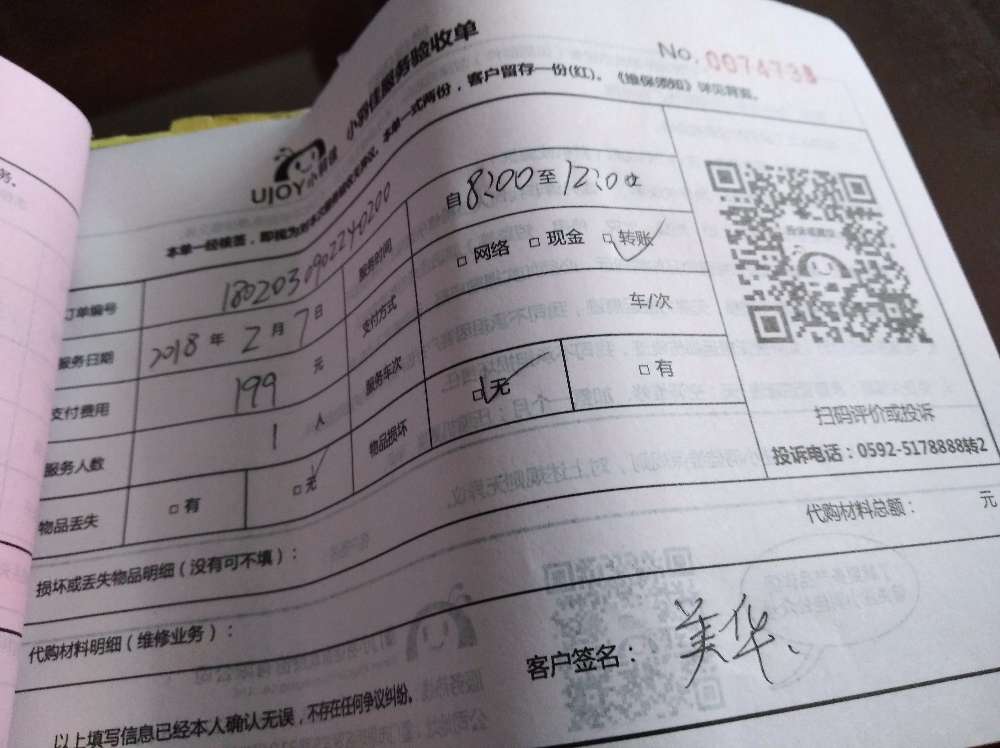 小羽佳服务验收单
No. 0074738
UJOY小羽佳
本单一式两份，客户留存一份(红)。《维保须知》详见背面。
订单编号 180203090224
服务时间 自8:00至12:00
服务日期 2018年2月7日
支付方式 □ 网络 □ 现金 □ 转账
支付费用 199 元
服务车次 车/次
服务人数 1 人
物品损坏 □ 无 □ 有
物品丢失 □ 有 □ 无
扫码评价或投诉
投诉电话：0592-5178888转2
损坏或丢失物品明细（没有可不填）：
代购材料总额： 元
代购材料明细（维修业务）：
客户签名： 美华
以上填写信息已经本人确认无误，不存在任何争议纠纷。